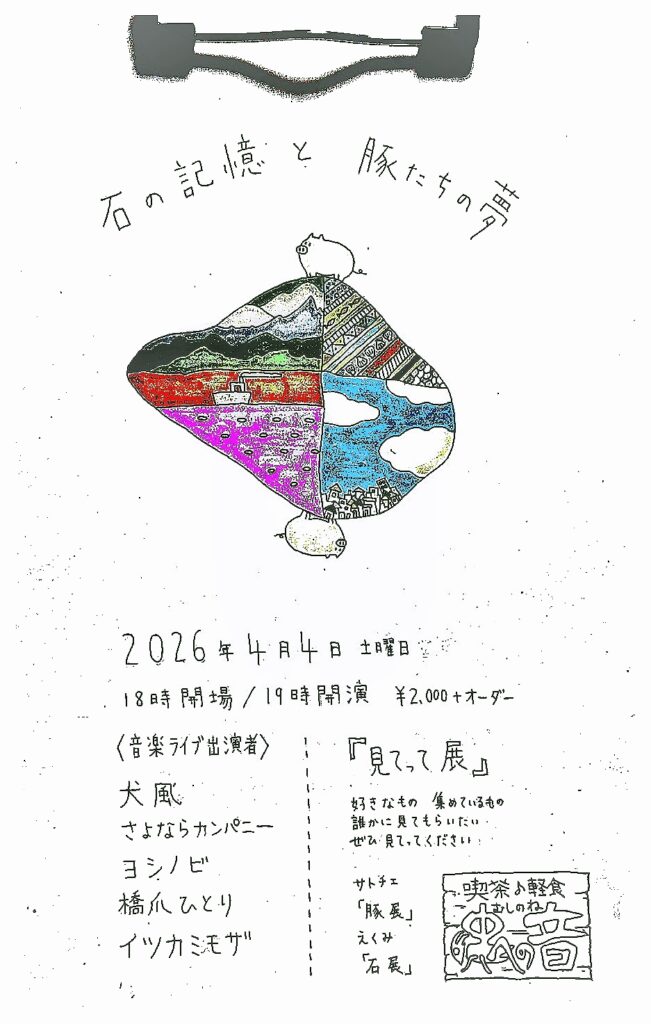 石の記憶と 豚たちの夢
2026年4月4日 土曜日
18時開場/19時開演 ¥2,000+オーダー
〈音楽ライブ出演者〉
犬風
さよならカンパニー
ヨシノビ
橋爪ひとり
イツカミモザ
『見てって展』
好きなもの 集めているもの
誰かに見てもらいたい
ぜひ見てってください
サトチエ
「豚展」
えくみ
「石展」
喫茶♪軽食
むしのね
虫の音